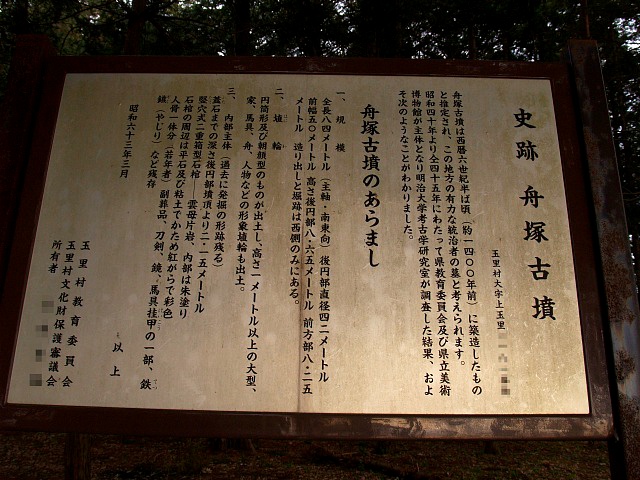 史跡 舟塚古墳
玉里村大字上玉里
舟塚古墳は西暦六世紀半ば頃（約一四〇〇年前）に築造したもの
と推定され、この地方の有力な統治者の墓と考えられます。
昭和四十年より仝四十五年にわたって県教育委員会及び県立美術
博物館が主体となり明治大学考古学研究室が調査した結果、およ
そ次のようなことがわかりました。
舟塚古墳のあらまし
一、規模
全長八四メートル（主軸・南東向）後円部直径四二メートル
前幅五〇メートル 高さ後円部八・六五メートル 前方部八・二五
メートル 造り出しと堀跡は西側のみにある。
二、埴輪
円筒形及び朝顔型のものが出土し、高さ一メートル以上の大型、
家、馬具、舟、人物などの形象埴輪も出土。
三、内部主体（過去に発掘の形跡残る）
蓋石までの深さ後円部墳頂より二・一五メートル
竪穴式二重箱型石棺――雲母片岩、内部は朱塗り
石棺の周辺は平石及び粘土でかため紅がらで彩色
人骨一体分（若年者）副葬品、刀剣、鏡、馬具挂甲の一部、鉄
鏃（やじり）など残存
以上
昭和六十三年三月
玉里村教育委員会
玉里村文化財保護審議会
所有者